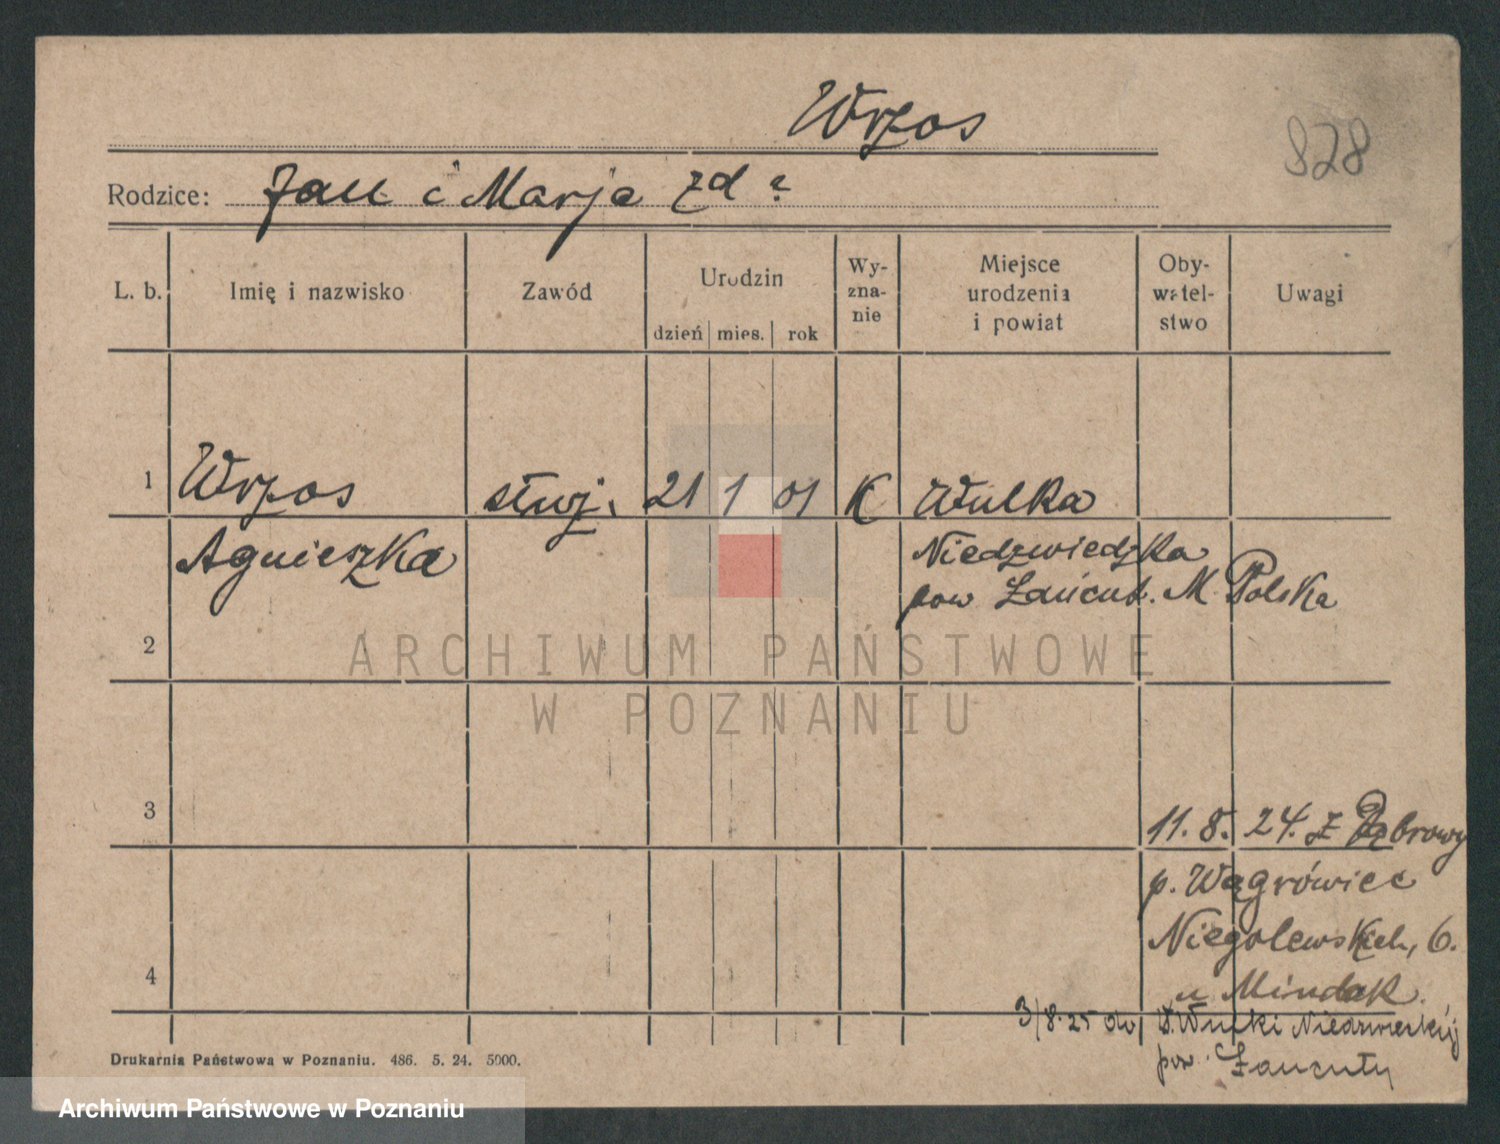 Wrzos
828
Rodzice: Jan i Marja zd ?
L. b. Imię i nazwisko Zawód Urodzin dzień mies. rok Wy- zna- nie Miejsce urodzenia i powiat Oby- watel- stwo Uwagi
1 Wrzos służ. 21 1 01 K Wulka
Agnieszka Niedzwiedzka
pow Łańcut. M. Polska
2
ARCHIWUM PAŃSTWOWE
W POZNANIU
3
11. 8. 24. z Dąbrowy
p. Wągrówiec
Niegolewskich, 6.
4
u Mindak.
3/8.25 do W. Wulki Niedzwieckiej
pow. Łancuty
Drukarnia Państwowa w Poznaniu. 486. 5. 24. 5000.
Archiwum Państwowe w Poznaniu